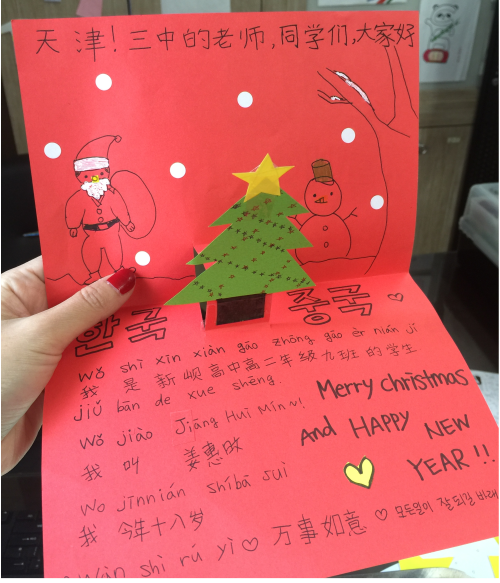 天津！三中的老师，同学们，大家好
한국 중국
wǒ shì xīn xiàn gāo zhōng gāo èr nián jí
我 是 新岘高中高二年级九班的学生
jiǔ bān de xue shēng.
wǒ jiào Jiāng Huì Mǐn~!
我 叫 姜惠敃
wo jīnnián shíbā suì
我 今年十八岁
wàn shì rú yì♡ 万事如意 ♡ 모든일이 잘되길 바래
Merry christmas
And HAPPY NEW
YEAR!!